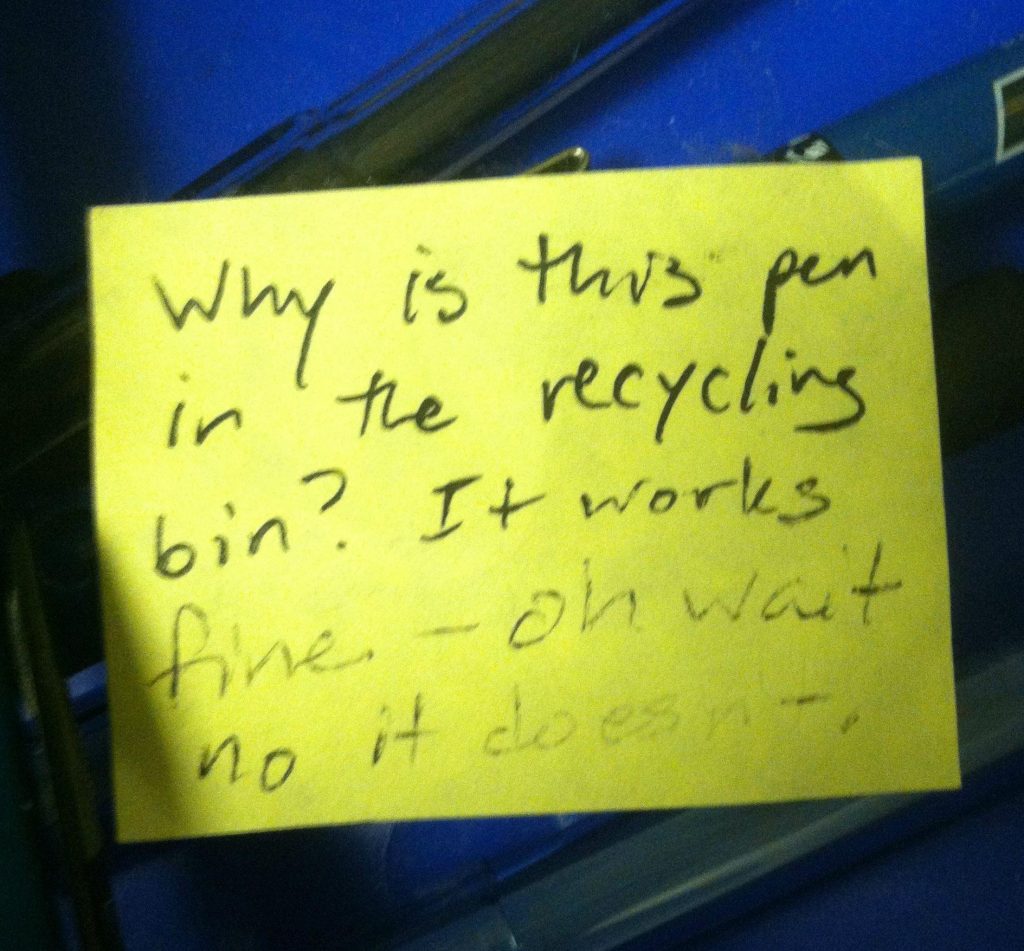 Why is this pen
in the recycling
bin? It works
fine - oh wait
no it doesn't.